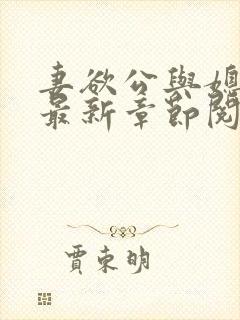 妻欲公與媳
最新章節閱
賈東明